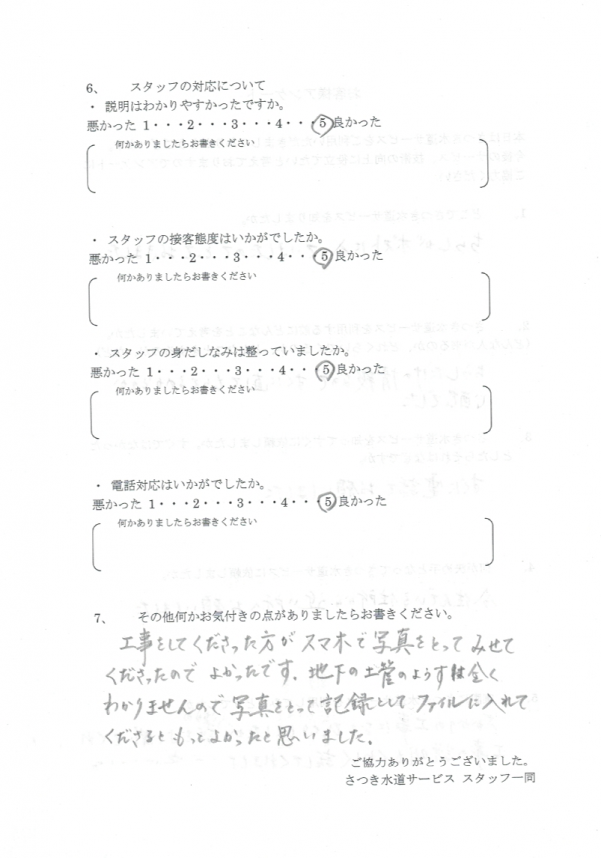 6、 スタッフの対応について
・ 説明はわかりやすかったですか。
悪かった 1・・・2・・・3・・・4・・・5 良かった
何かありましたらお書きください
・ スタッフの接客態度はいかがでしたか。
悪かった 1・・・2・・・3・・・4・・・5 良かった
何かありましたらお書きください
・ スタッフの身だしなみは整っていましたか。
悪かった 1・・・2・・・3・・・4・・・5 良かった
何かありましたらお書きください
・ 電話対応はいかがでしたか。
悪かった 1・・・2・・・3・・・4・・・5 良かった
何かありましたらお書きください
7、 その他何かお気付きの点がありましたらお書きください。
工事をしてくださった方がスマホで写真をとってみせて
くださったのでよかったです。地下の土管のようすは全く
わかりませんので写真をとって記録としてファイルに入れて
くださるともっとよかったと思いました。
ご協力ありがとうございました。
さつき水道サービス スタッフ一同